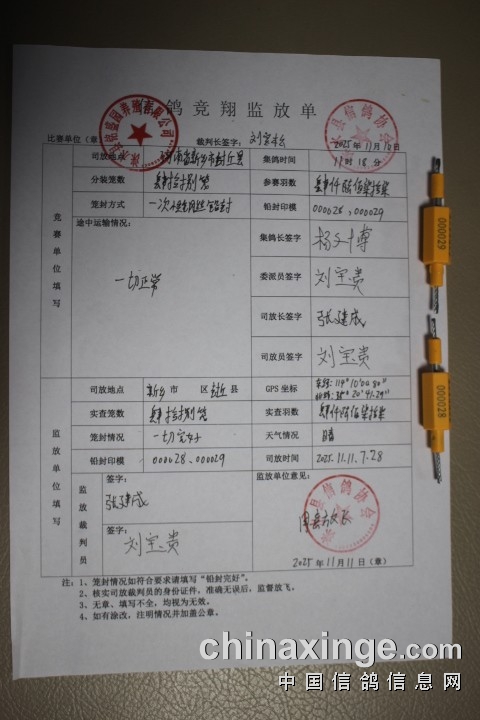 信鸽竞翔监放单
比赛单位（章 裁判长签字： 2025年11月10日
竞赛单位填写
司放地点 河南省新乡市封丘县 集鸽时间 11时18分
分装笼数 参赛羽数
笼封方式 一次性铅丝铅封 铅封印模 000028、000029
途中运输情况：
一切正常
集鸽长签字 杨
委派员签字 刘宝贵
司放长签字 张建成
司放员签字 刘宝贵
监放单位填写
司放地点 新乡市 区封丘县 GPS 坐标
实查笼数 实查羽数
笼封情况 一切完好 天气情况 晴
铅封印模 000028、000029 司放时间 2025.11.11.7.28
监放裁判员
签字：
张建成
签字：
刘宝贵
监放单位意见：
同意放飞
2025年11月11日（章）
注：1、笼封情况如符合要求请填写“铅封完好”。
2、核实司放裁判员的身份证件，准确无误后，监督放飞。
3、无章、填写不全，均视为无效。
4、如有涂改，注明情况并加盖公章。
县信鸽协会
县信鸽协会
000029
000028
chinaxinge.com
中国信鸽信息网